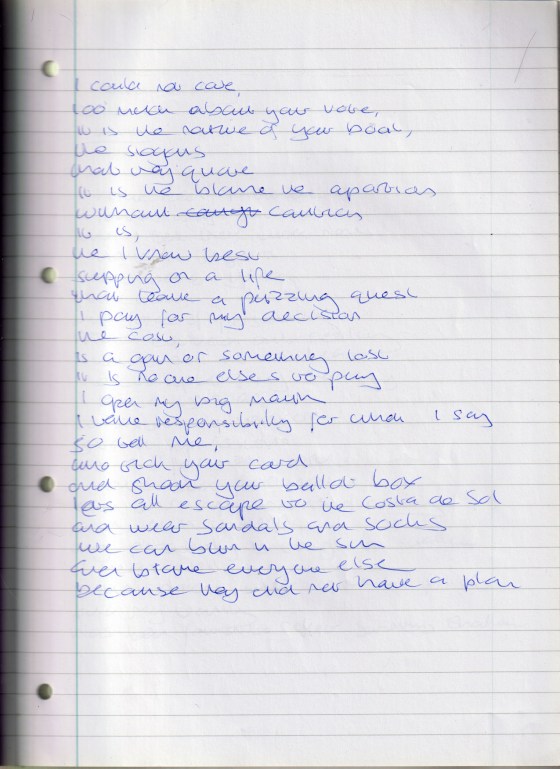 I could not care,
too much about your vote,
it is the nature of your boat,
the slogans
that they quote
it is the blame the apportion
without caution
it is,
the I know best
stepping on a life
that leave a puzzling quest
I pay for my decision
the cost,
is a gain or something lost
it is no one elses to pay
I open my big mouth
I have responsibility for what I say
so tell me,
who tick your card
and shook your ballot box
lets all escape to the Costa de Sol
and wear sandals and socks
we can burn in the sun
even blame everyone else
because they did not have a plan